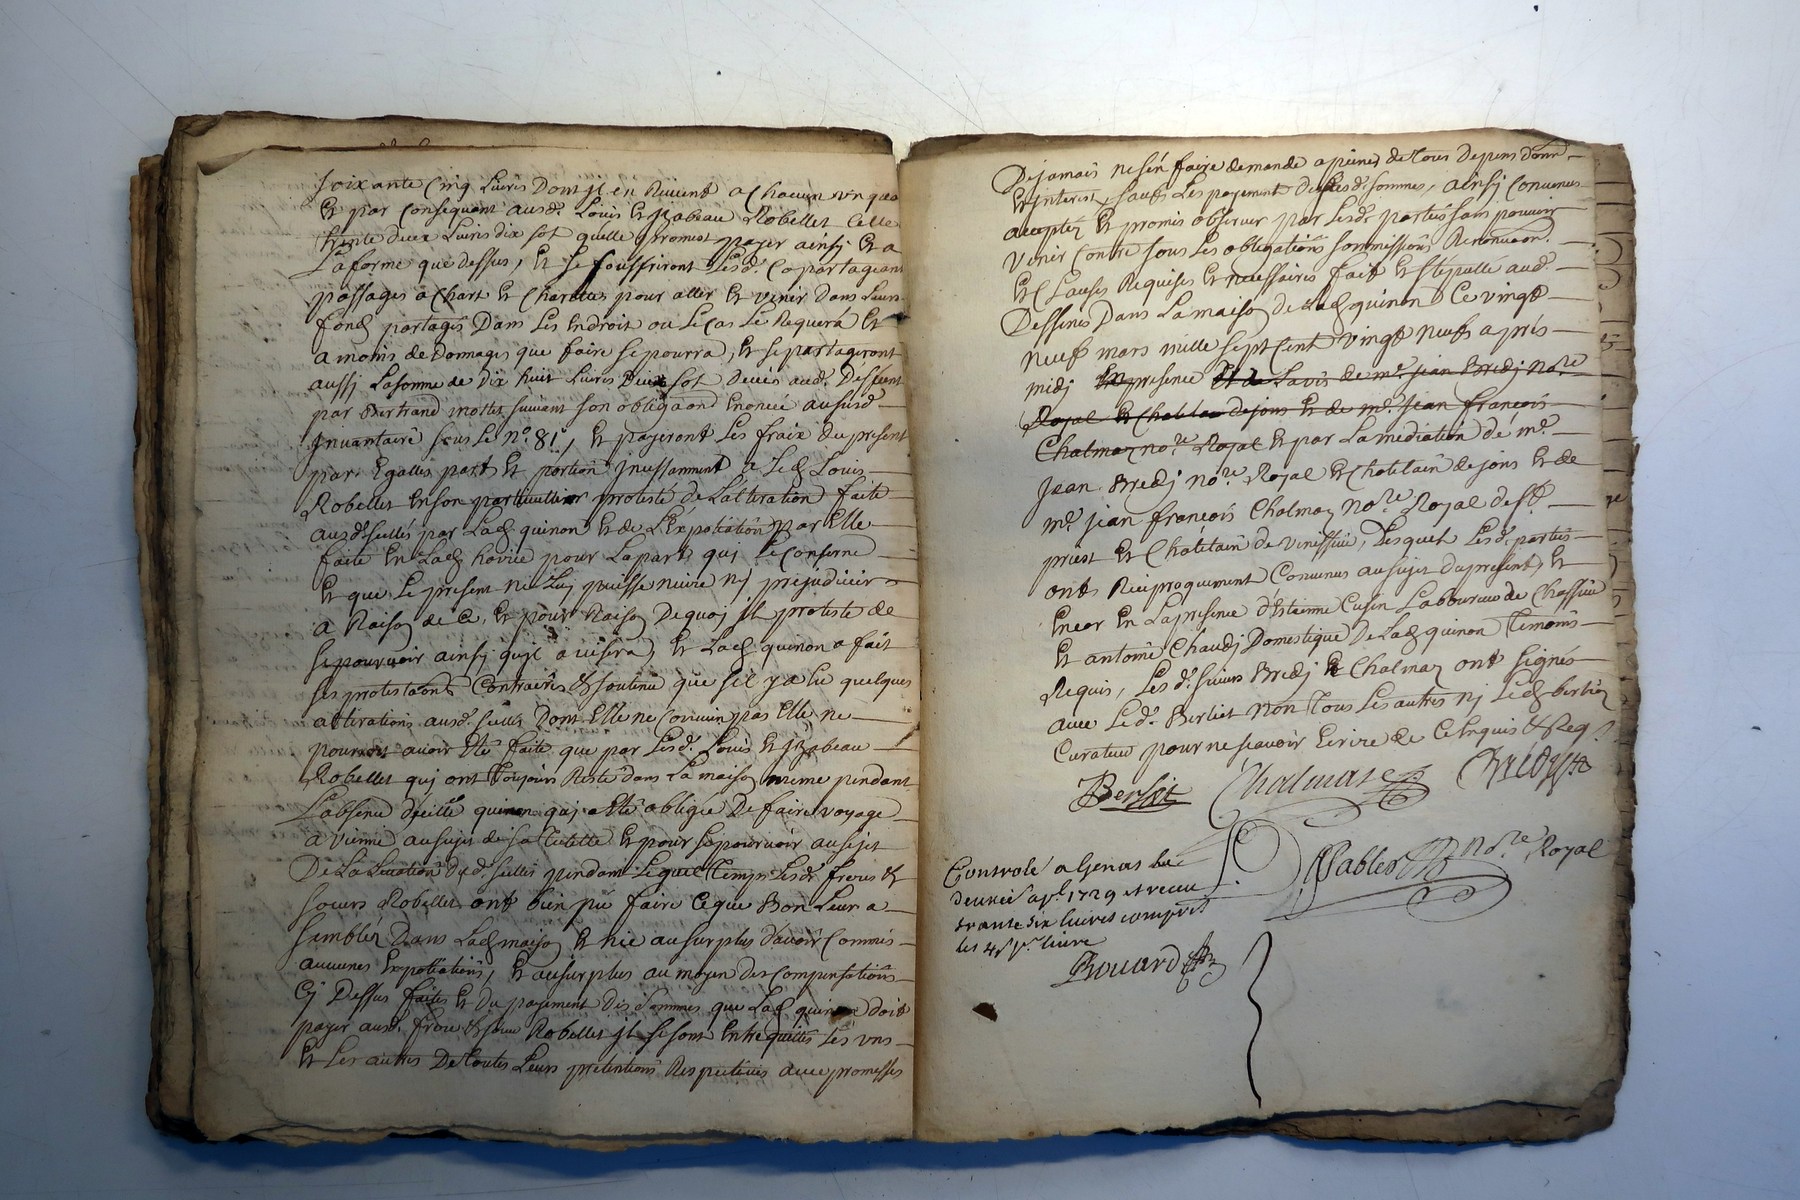 soixante Cinq Livres Dont jl en Revient a Chacun un quar
Et par Consequant ausd. Louis Et jzabeau Robellet Celle
trente deux Livres dix sol quelle promet payer ainsj Et a
La forme que dessus, Et se souffriront Lesd. Copartageant
passages a Chart Et Charettes pour aller Et venir Dans Leurs
fond partagés Dans Les Endroit ou Le Cas Le Requera Et
a moins de domages que faire se pourra, Et se partageront
aussj La somme de dix huit Livres Deux sol Deues aud. Deffunt
par Bertrand mottet suivant son obligaond Enoncé au susd
jnvantaire sous Le n.º 81, Et payeront Les fraix du present
par Egalles part Et portion jncessamment a Led. Louis
Robellet En son particullier protesté de Lalteration faite
ausd. scellés par Lad. quinon Et de L'Expoliation par Elle
faite En Lad. hoirie pour La part quj Le Conserne
Et que Le present ne Luy puisse nuire nj prejudicier
a Raison de Ce, Et pour Raison De quoj jl proteste de
se pourvoir ainsj qujl avisera, Et Lad. quinon a fait
ses protestaons Contraires & soutenu que sil y a Eu quelques
alterations ausd. scellés Dont Elle ne Convien pas Elle ne
pourroit avoir Eté faite que par Lesd. Louis Et jzabeau
Robellet quj ont Toujours Resté dans La maison meme pendant
L'absence d'icelle quinon quj a Eté obligée De faire voyage
a vienne au sujet de sa Tutelle Et pour se pourvoir au sujet
De La Levation desd. scellés pendant Lequel Temps Lesd. freres &
soeurs Robellet ont bien pu faire Ce que Bon Leur a
semblér Dans Lad. maison Et nie au surplus d'avoir Commis
aucunes Expoliations, Et au surplus au moyen des Compensations
Cj Dessus faites Et du payement Des sommes que Lad. quinon doit
payer ausd. frere & soeur Robellet jl se sont Entrequittés Les uns
Et Les autres De toutes Leurs pretentions Respectives avec promesses
De jamais ne s'en faire demande a peine de tous Depens domm
Et interest, sauf Les payement Desd. sommes, ainsj Convenus
accepté Et promis observer par Lesd. parties sans pouvoir
venir Contre sous Les obligations sommissions Renonceon.
Et Clauses Requises Et necessaires fait Et stipullé aud.
Dessines Dans La maison de Lad. quinon Ce vingt
neuf mars mille sept Cent vingt neuf apres
midj En presence Et de Lavis de me. jean Bredj no.re
Royal Et Chatelain de jons Et de me. jean francois
Chalmaz no.re Royal Et par La mediation de me.
jean Bredj no.re Royal Et Chatelain de jons Et de
me. jean francois Chalmaz no.re Royal de st.
priest Et Chatelain de venissieu, Desquels Lesd. parties
ont Reciproquement Convenus au sujet du present, Et
Encor En La presence d'Etienne Cusin Laboureur de Chassieu
Et antoine Chaudj Domestique De Lad. quinon Temoins
Requis, Lesd. sieurs Bredj Et Chalmaz ont signés
avec Led. Berliet non Tous Les autres nj Led. berliez
Curateur pour ne scavoir Ecrire de Ce Enquis & Reqs
Berliet Chalmaz Bredy
Sablet no.re Royal
Controlé a Genas le
deuxie. apl. 1729 et receu
trante six livres compris
les 4 s. pr. livre
Rouard